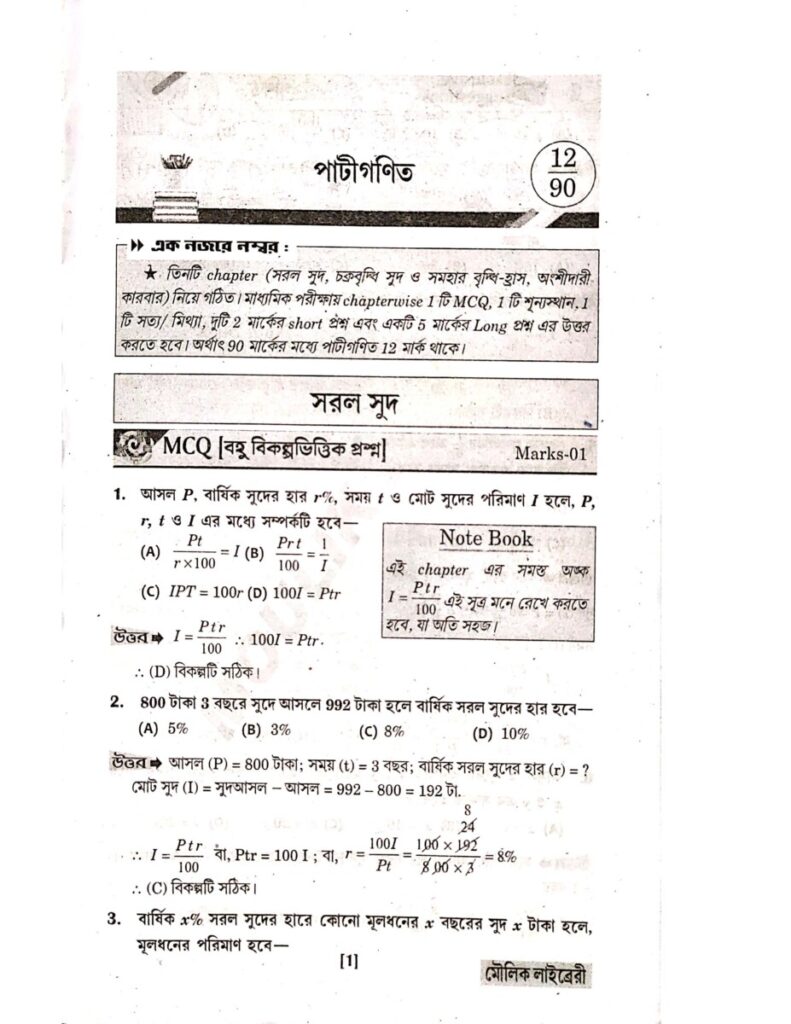 পাটীগণিত
12
90
এক নজরে নম্বর :
★ তিনটি chapter (সরল সুদ, চক্রবৃদ্ধি সুদ ও সমহার বৃদ্ধি-হ্রাস, অংশীদারী
কারবার) নিয়ে গঠিত। মাধ্যমিক পরীক্ষায় chapterwise 1 টি MCQ, 1 টি শূন্যস্থান, 1
টি সত্য/ মিথ্যা, দুটি 2 মার্কের short প্রশ্ন এবং একটি 5 মার্কের Long প্রশ্ন এর উত্তর
করতে হবে। অর্থাৎ 90 মার্কের মধ্যে পাটীগণিত 12 মার্ক থাকে।
সরল সুদ
MCQ [বহু বিকল্পভিত্তিক প্রশ্ন] Marks-01
1. আসল P, বার্ষিক সুদের হার r%, সময় t ও মোট সুদের পরিমাণ I হলে, P,
r, t ও I এর মধ্যে সম্পর্কটি হবে—
(A) Pt/(r×100) = I (B) Prt/100 = 1/I
(C) IPT = 100r (D) 100I = Ptr
Note Book
এই chapter এর সমস্ত অঙ্ক
I = Ptr/100 এই সূত্র মনে রেখে করতে
হবে, যা অতি সহজ।
উত্তর ⇒ I = Ptr/100 ∴ 100I = Ptr.
∴ (D) বিকল্পটি সঠিক।
2. 800 টাকা 3 বছরে সুদে আসলে 992 টাকা হলে বার্ষিক সরল সুদের হার হবে—
(A) 5% (B) 3% (C) 8% (D) 10%
উত্তর ⇒ আসল (P) = 800 টাকা; সময় (t) = 3 বছর; বার্ষিক সরল সুদের হার (r) = ?
মোট সুদ (I) = সুদআসল – আসল = 992 – 800 = 192 টা.
8
24
∴ I = Ptr/100 বা, Ptr = 100 I ; বা, r = 100I/Pt = (100 × 192)/(800 × 3) = 8%
∴ (C) বিকল্পটি সঠিক।
3. বার্ষিক x% সরল সুদের হারে কোনো মূলধনের x বছরের সুদ x টাকা হলে,
মূলধনের পরিমাণ হবে—
[1]
মৌলিক লাইব্রেরী